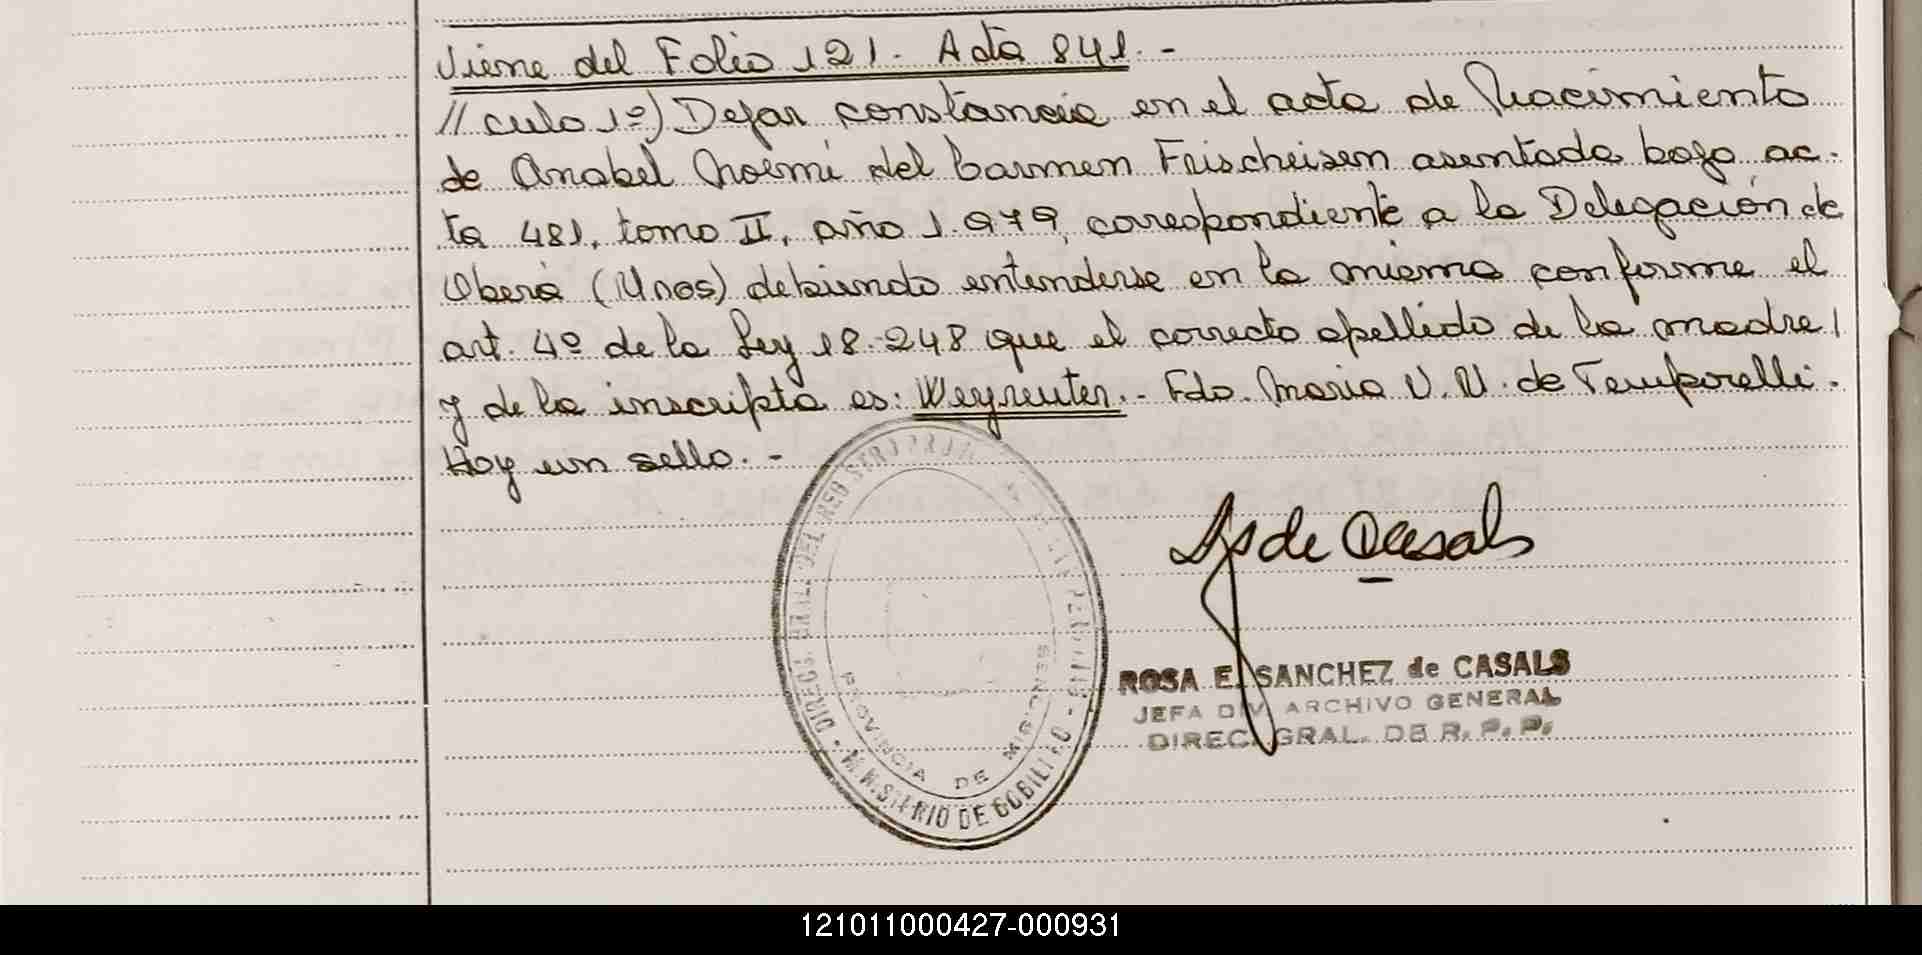 Viene del Folio 121. Acta 841.-
//culo 1º) Dejar constancia en el acta de Nacimiento
de Anabel Noemi del Carmen Frischeisen asentada bajo ac-
ta 481, tomo II, año 1.979, correspondiente a la Delegación de
Oberá (Mnes) debiendo entenderse en la misma conforme el
art. 4º de la Ley 18.248 que el correcto apellido de la madre/
y de la inscripta es: Weyreuter.- Fdo. Maria V. V. de Temporelli.
Hay un sello.-
de Casals
DIRECC. GRAL. DEL REG. PERSONAS - MINISTERIO DE GOBIERNO
PROVINCIA DE MISIONES
ROSA E. SANCHEZ de CASALS
JEFA DIV. ARCHIVO GENERAL
DIREC. GRAL. DE R. P. P.
121011000427-000931